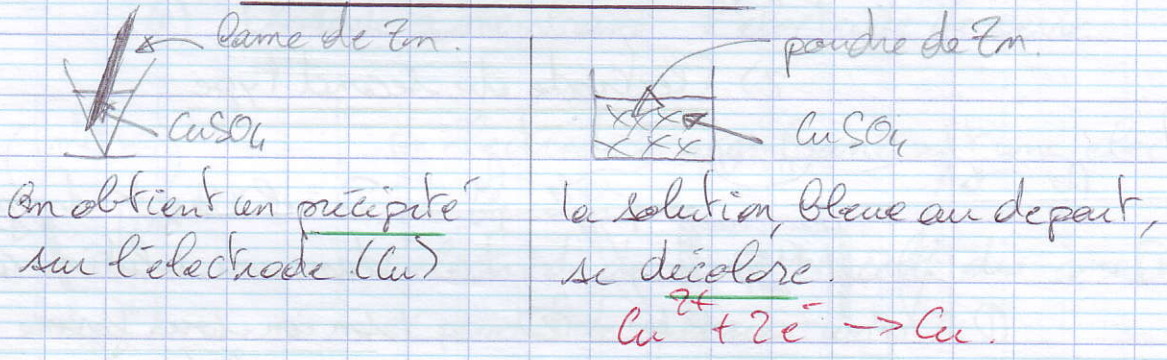 lame de Zn.
CuSO4
On obtient un précipité
sur l'électrode (Cu)
poudre de Zn.
CuSO4
la solution, bleue au depart,
se décolore.
Cu2+ + 2e- -> Cu.